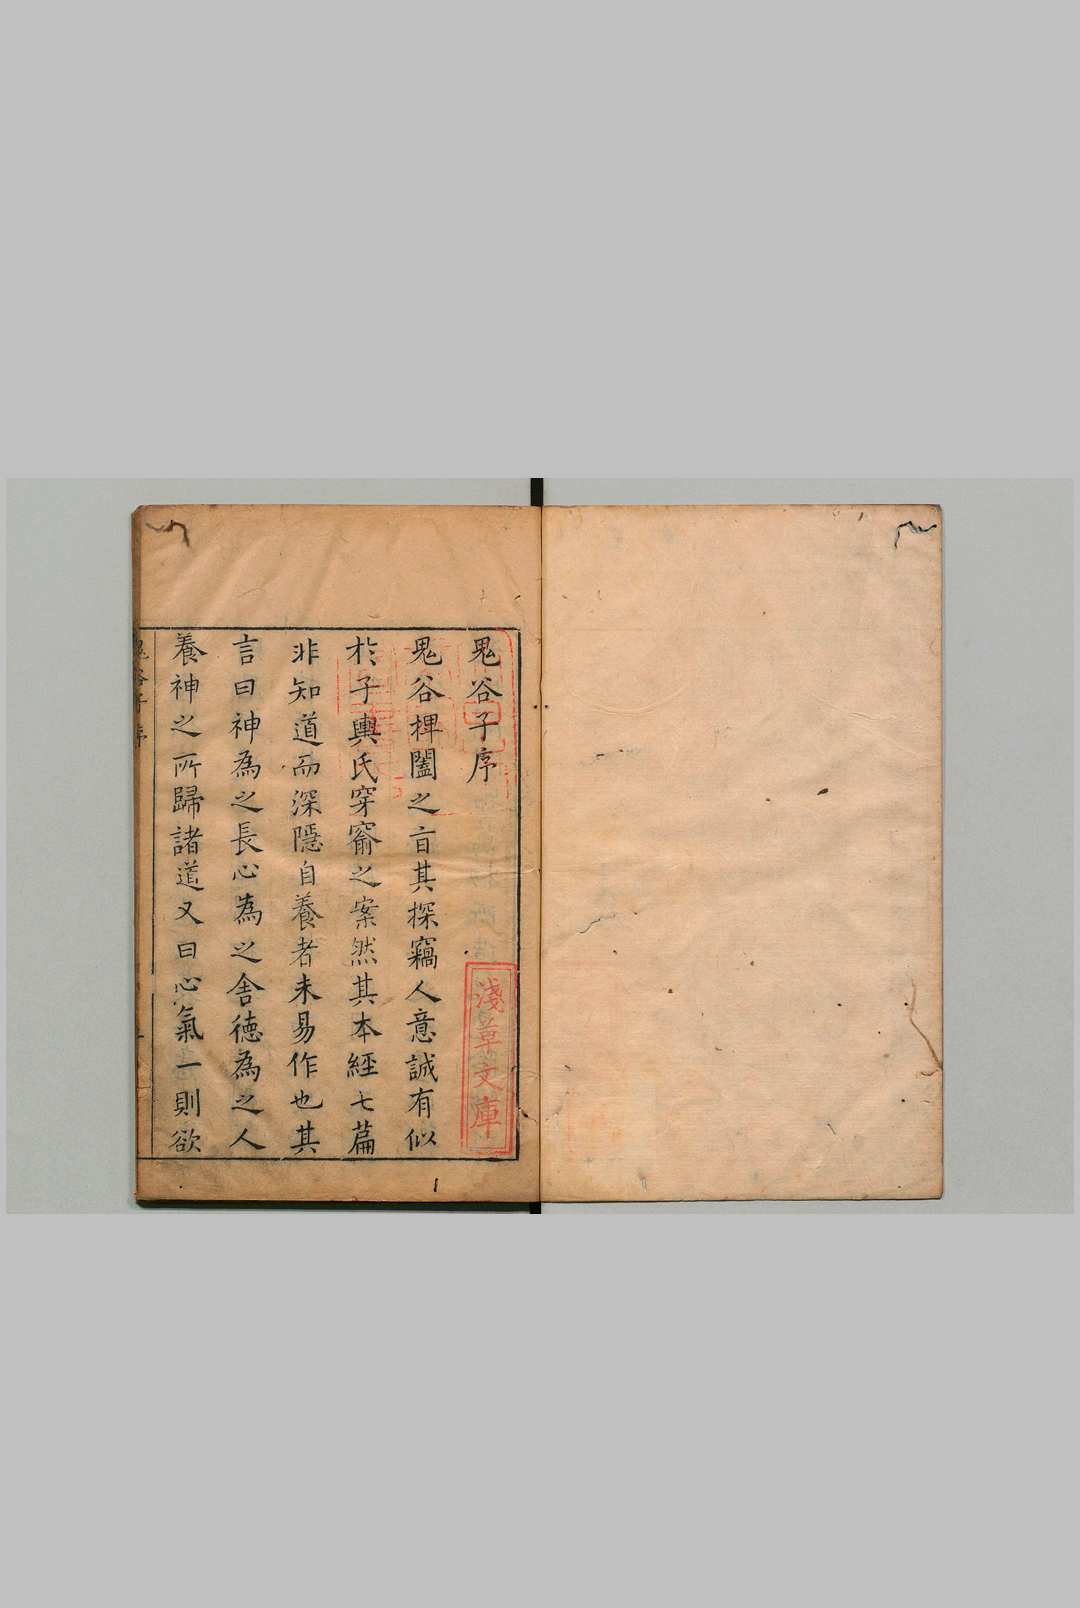 鬼谷子序
鬼谷捭闔之㫖其探竊人意誠有似
於子輿氏穿窬之案然其本經七篇
非知道而深隱自養者未易作也其
言曰神為之長心為之舍德為之人
養神之所歸諸道又曰心氣一則欲
淺草文庫